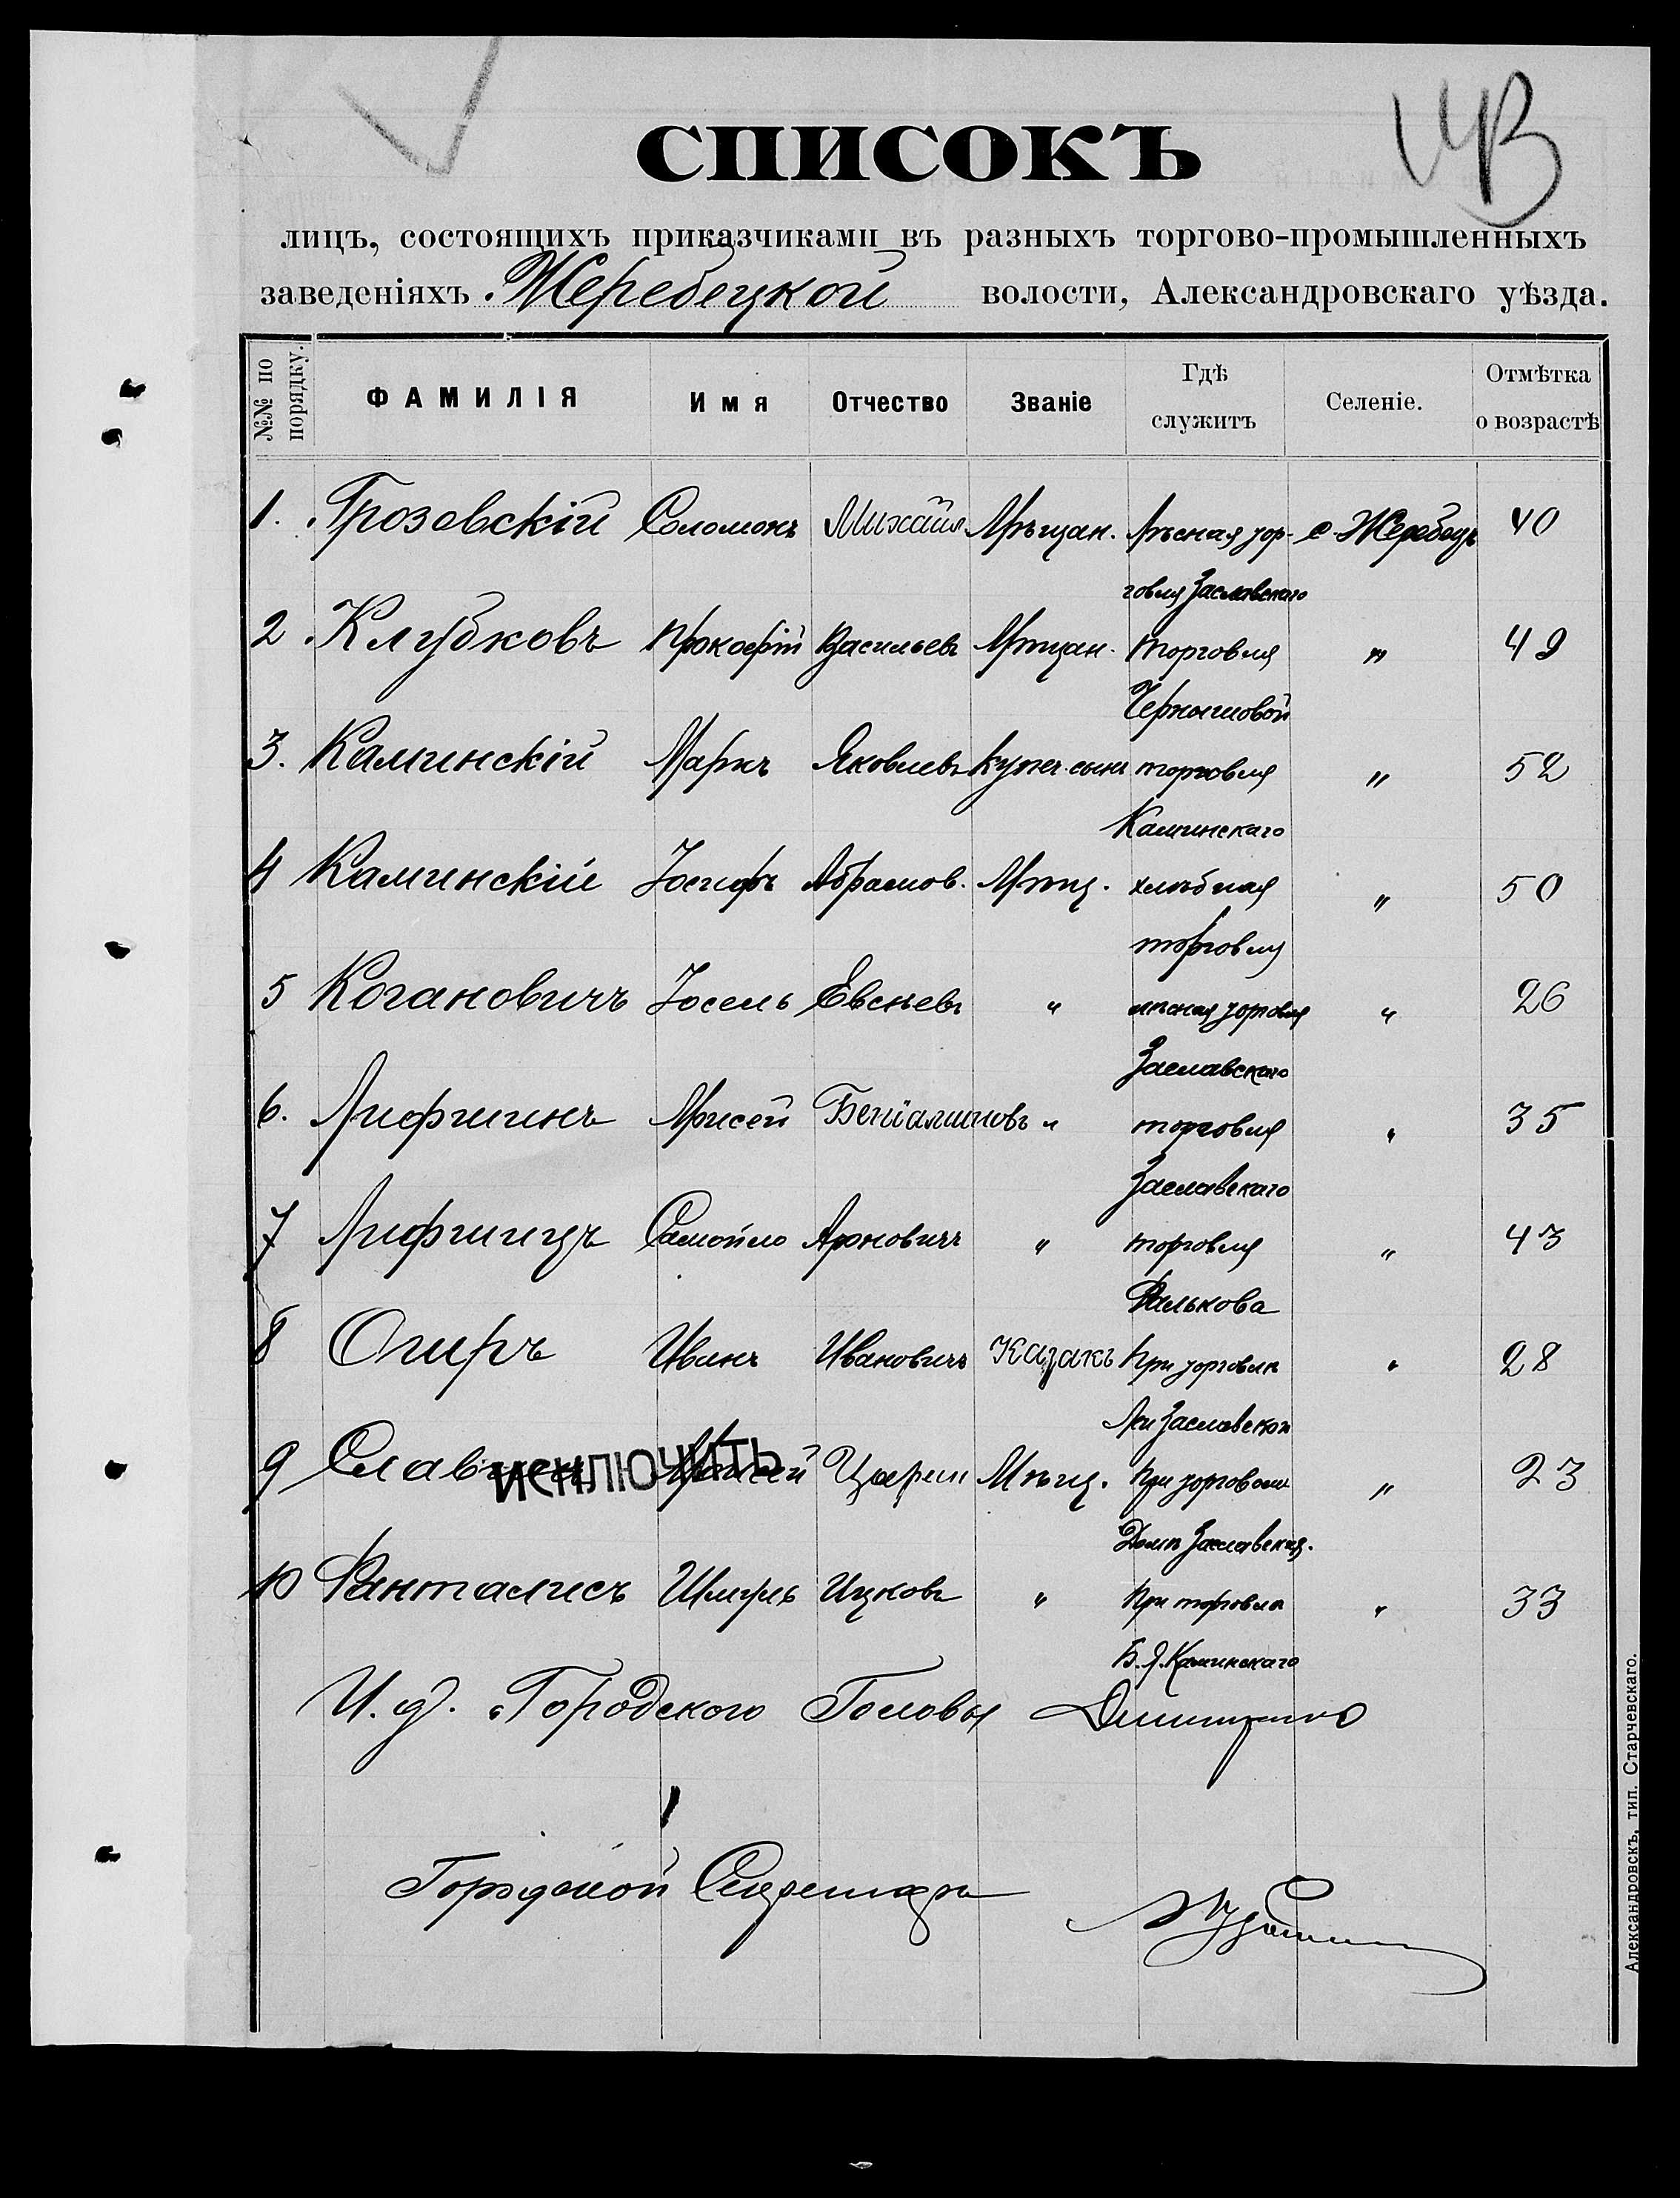 СПИСОКЪ
лицъ, состоящихъ приказчиками въ разныхъ торгово-промышленныхъ
заведеніяхъ Жеребецкой волости, Александровскаго уѣзда.
№№ по порядку. ФАМИЛІЯ Имя Отчество Званіе Гдѣ служитъ Селеніе. Отмѣтка о возрастѣ
1. Грозовскій Соломонъ Михайл. Мѣщан. Лѣсная тор- с. Жеребецъ 40
говля Заславскаго
2 Клубковъ Прокофій Васильевъ Мѣщан. торговля „ 49
Чернышовой
3. Каминскій Маркъ Яковлевъ Купеч. сынъ торговля „ 52
Каминскаго
4 Каминскій Іосифъ Абрамов. Мѣщ. хлѣбная „ 50
торговля
5 Когановичъ Іосель Евсѣевъ „ лѣсная торговля „ 26
Заславскаго
6. Лифшинъ Моисей Беніаминовъ „ торговля „ 35
Заславскаго
7 Лифшицъ Самойло Ароновичъ „ торговля „ 43
Фалькова
8 Огиръ Иванъ Ивановичъ Казакъ При торговлѣ „ 28
Заславской
9 Моисей Мѣщ. При торговом „ 23
ИСКЛЮЧИТЬ
Домѣ Заславскаг.
10 Фанталисъ Шмуль Ицковъ „ При торговлѣ „ 33
Б. Я. Каминскаго
И. д. Городского Головы
Городской Секретарь
Александровскъ, тип. Старчевскаго.